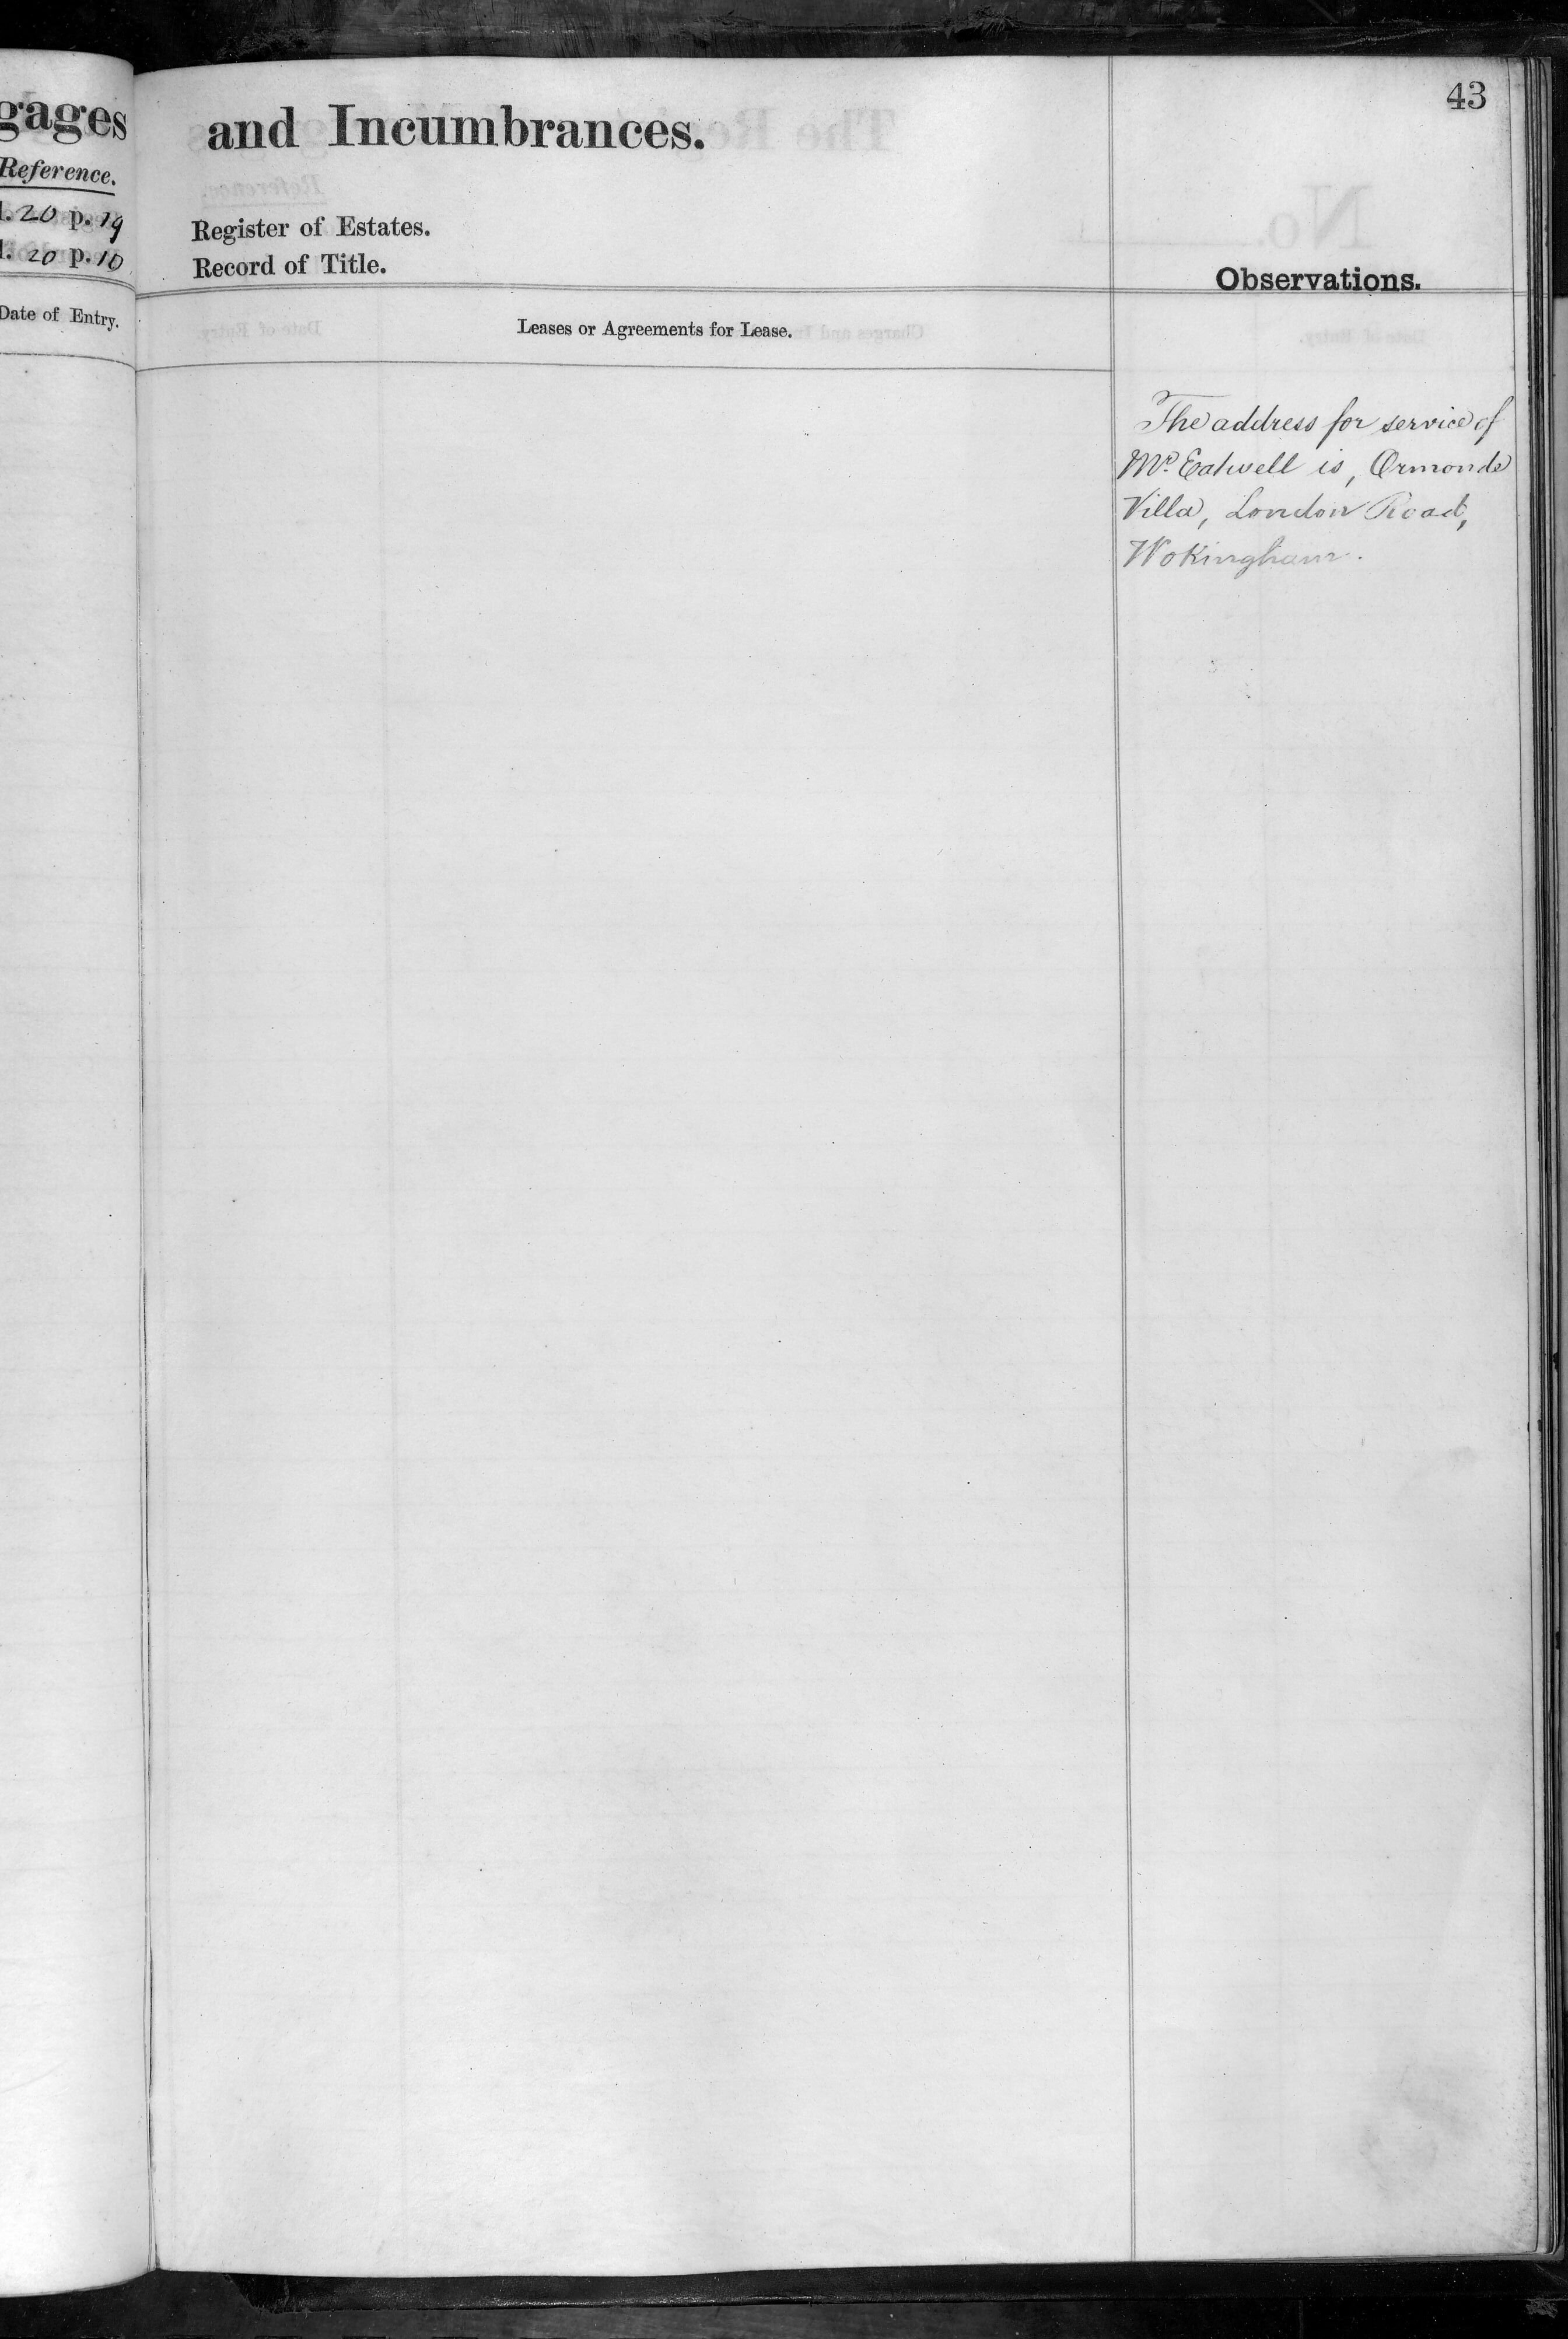 gages
Reference.
l. 20 p. 19
l. 20 p. 10
Date of Entry.
43
and Incumbrances.
Register of Estates.
Record of Title.
Observations.
Leases or Agreements for Lease.
The address for service of
Mr. Eatwell is, Ormonde
Villa, London Road,
Wokingham.